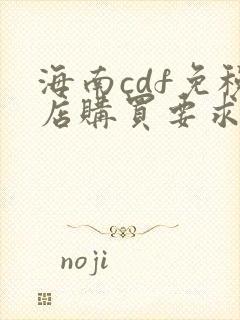 海南cdf免稅
店購買要求
noji